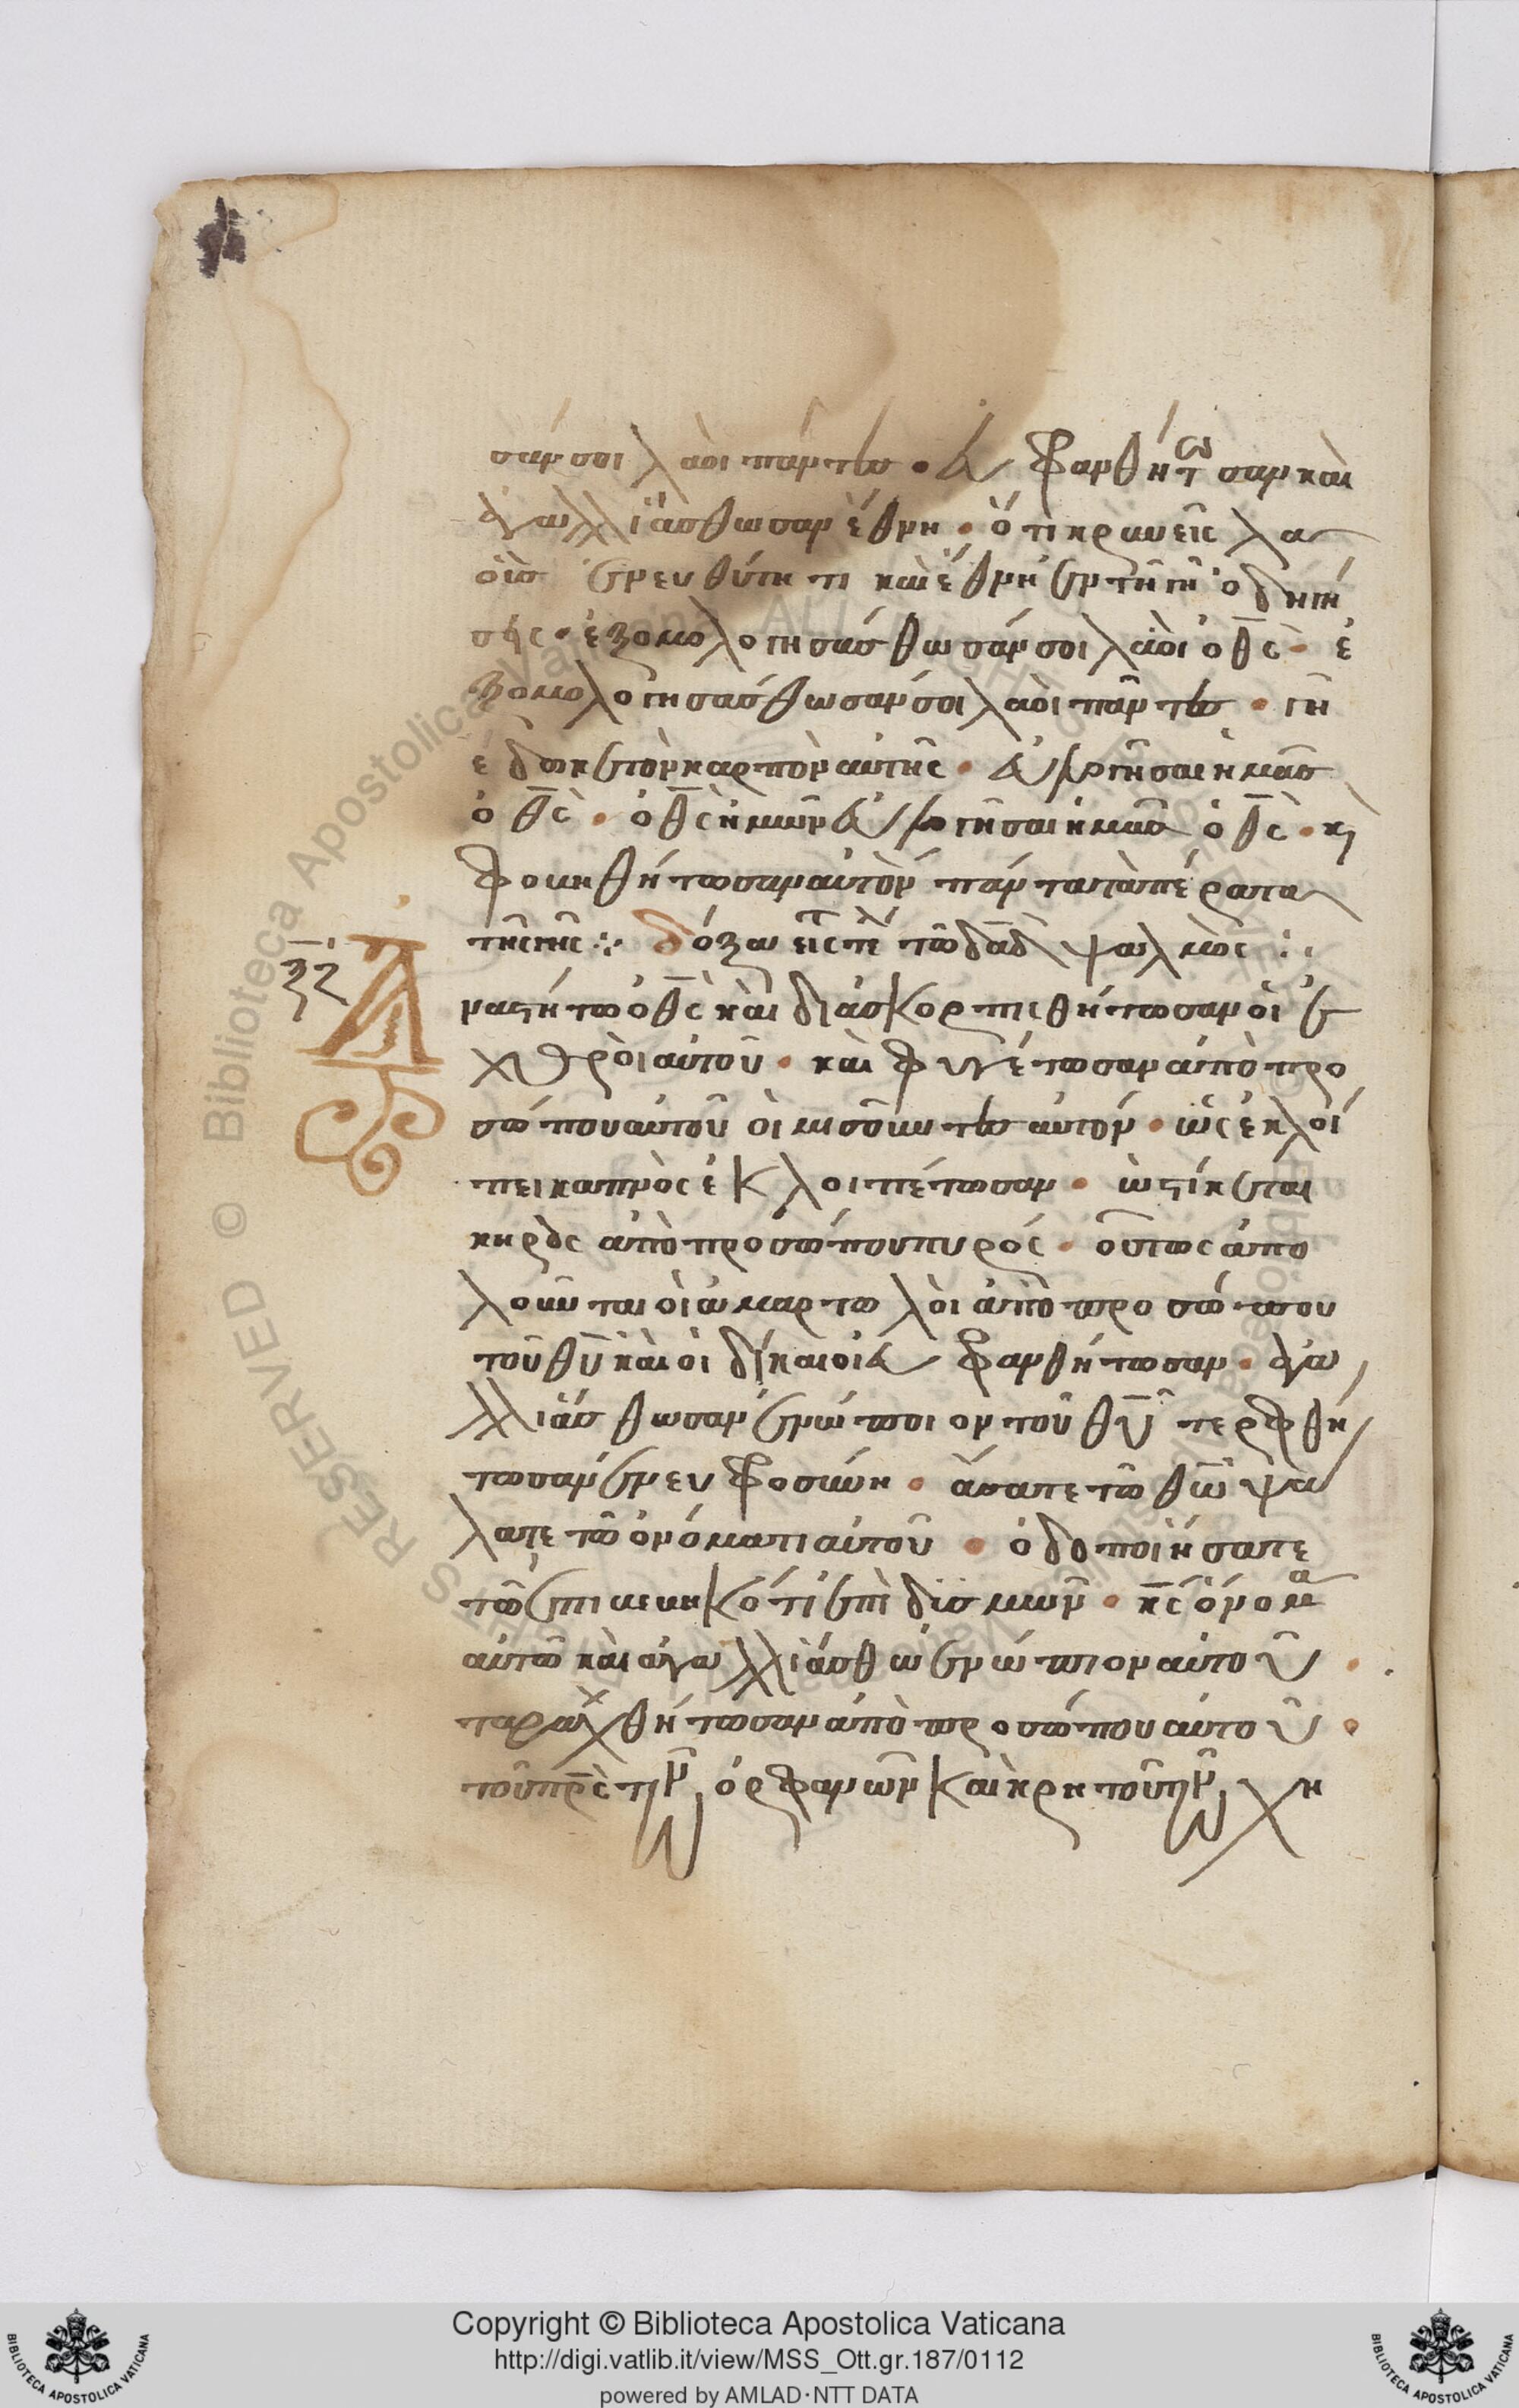 σάν σοι λαοὶ πάντες · εὐφρανθήτωσαν καὶ
ἀγαλλιάσθωσαν ἔθνη · ὅτι κρινεῖς λα
οὺς ἐν εὐθύτητι καὶ ἔθνη ἐν τῆ γῆ ὁδηγή
σῃς · ἐξομολογησάσθωσάν σοι λαοὶ ὁ θς · ἐ
ξομολογησάσθωσάν σοι λαοὶ πάντες · γῆ
ἔδωκε τὸν καρπὸν αὐτῆς · εὐλογῆσαι ἡμᾶς
ὁ θς · ὁ θς ἡμῶν εὐλογῆσαι ἡμᾶς ὁ θς · κ
φοβηθήτωσαν αὐτὸν πάντα τὰ πέρατα
τῆς γῆς ⁘ δόξα εἰς τ τέλ τῶ δαδ ψαλμὸς ⁘
ξζ
Α
ναστήτω ὁ θς καὶ διασκορπισθήτωσαν οἱ ἐ
χθροὶ αὐτοῦ · καὶ φυγέτωσαν ἀπὸ προ
σώπου αὐτοῦ οἱ μισοῦντες αὐτόν · ὡς ἐκλοί
πει καπνὸς ἐκλοιπέτωσαν · ὡς τίκεται
κηρὸς ἀπὸ προσώπου πυρός · οὕτως ἀπο
λοῦνται οἱ ἁμαρτωλοὶ ἀπὸ προσώπου
τοῦ θυ καὶ οἱ δίκαιοι εὐφρανθήτωσαν · ἀγα
λλιάσθωσαν ἐνώπιον τοῦ θυ τερφθή
τωσαν ἐν εὐφροσύνη · ἄσατε τῶ θω ψά
λατε τῶ ὀνόματι αὐτοῦ · ὁδοποιήσατε
τῶ ἐπιβεβηκότι ἐπὶ δυσμῶν · κς ὄνομα
αὐτῶ καὶ ἀγαλλιάσθω ἐνώπιον αὐτοῦ ·
ταραχθήτωσαν ἀπὸ προσώπου αὐτοῦ ·
τοῦ πρς τῶν ὀρφανῶν καὶ κρητοῦ τῶν χη
Copyright © Biblioteca Apostolica Vaticana
http://digi.vatlib.it/view/MSS_Ott.gr.187/0112
powered by AMLAD·NTT DATA